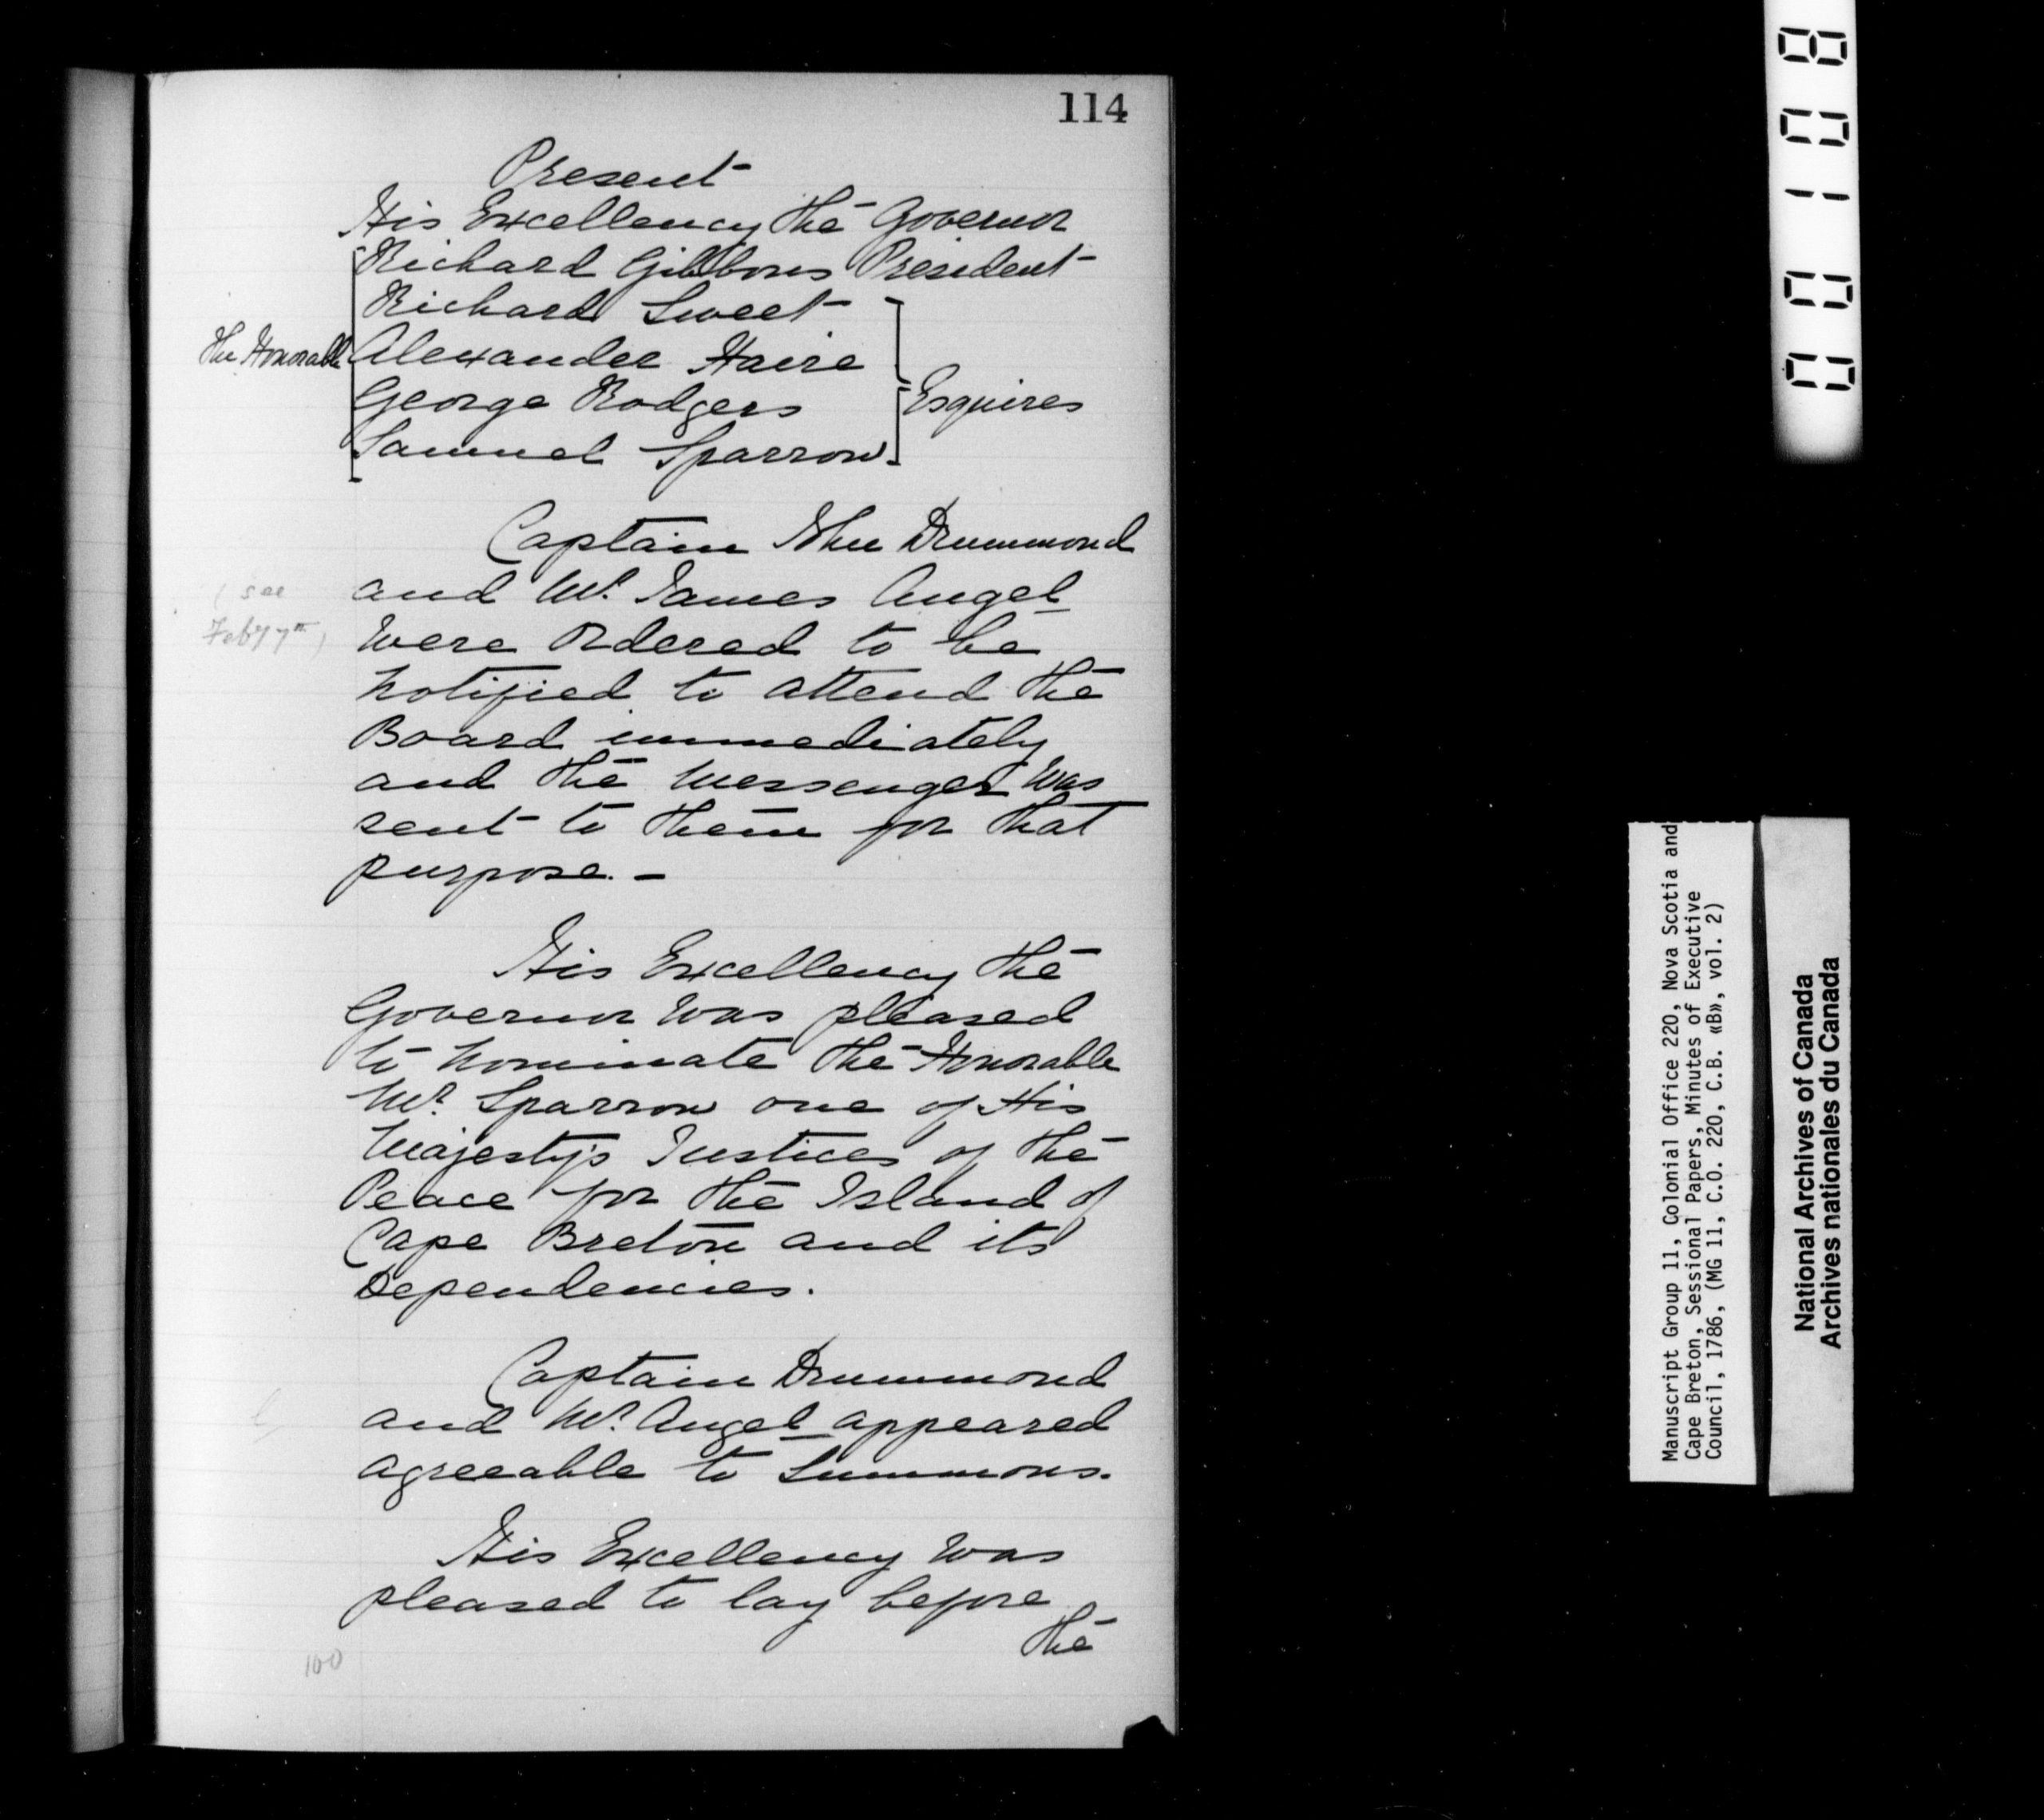 114
Present
His Excellency the Governor
Richard Gibbons President
Richard Sweet
The Honorable Alexander Haire
George Rodgers Esquires
Samuel Sparrow
Captain John Drummond
and Mr. James Angel
(see
Feby 7th)
were ordered to be
notified to attend the
Board immediately
and the Messenger was
sent to them for that
purpose. –
His Excellency the
Governor was pleased
to nominate the Honorable
Mr. Sparrow one of His
Majesty's Justices of the
Peace for the Island of
Cape Breton and its
Dependencies.
Captain Drummond
and Mr. Angel appeared
agreeable to Summons.
His Excellency was
pleased to lay before
the
100
001108
Manuscript Group 11, Colonial Office 220, Nova Scotia and
Cape Breton, Sessional Papers, Minutes of Executive
Council, 1786, (MG 11, C.O. 220, C.B. «B», vol. 2)
National Archives of Canada
Archives nationales du Canada